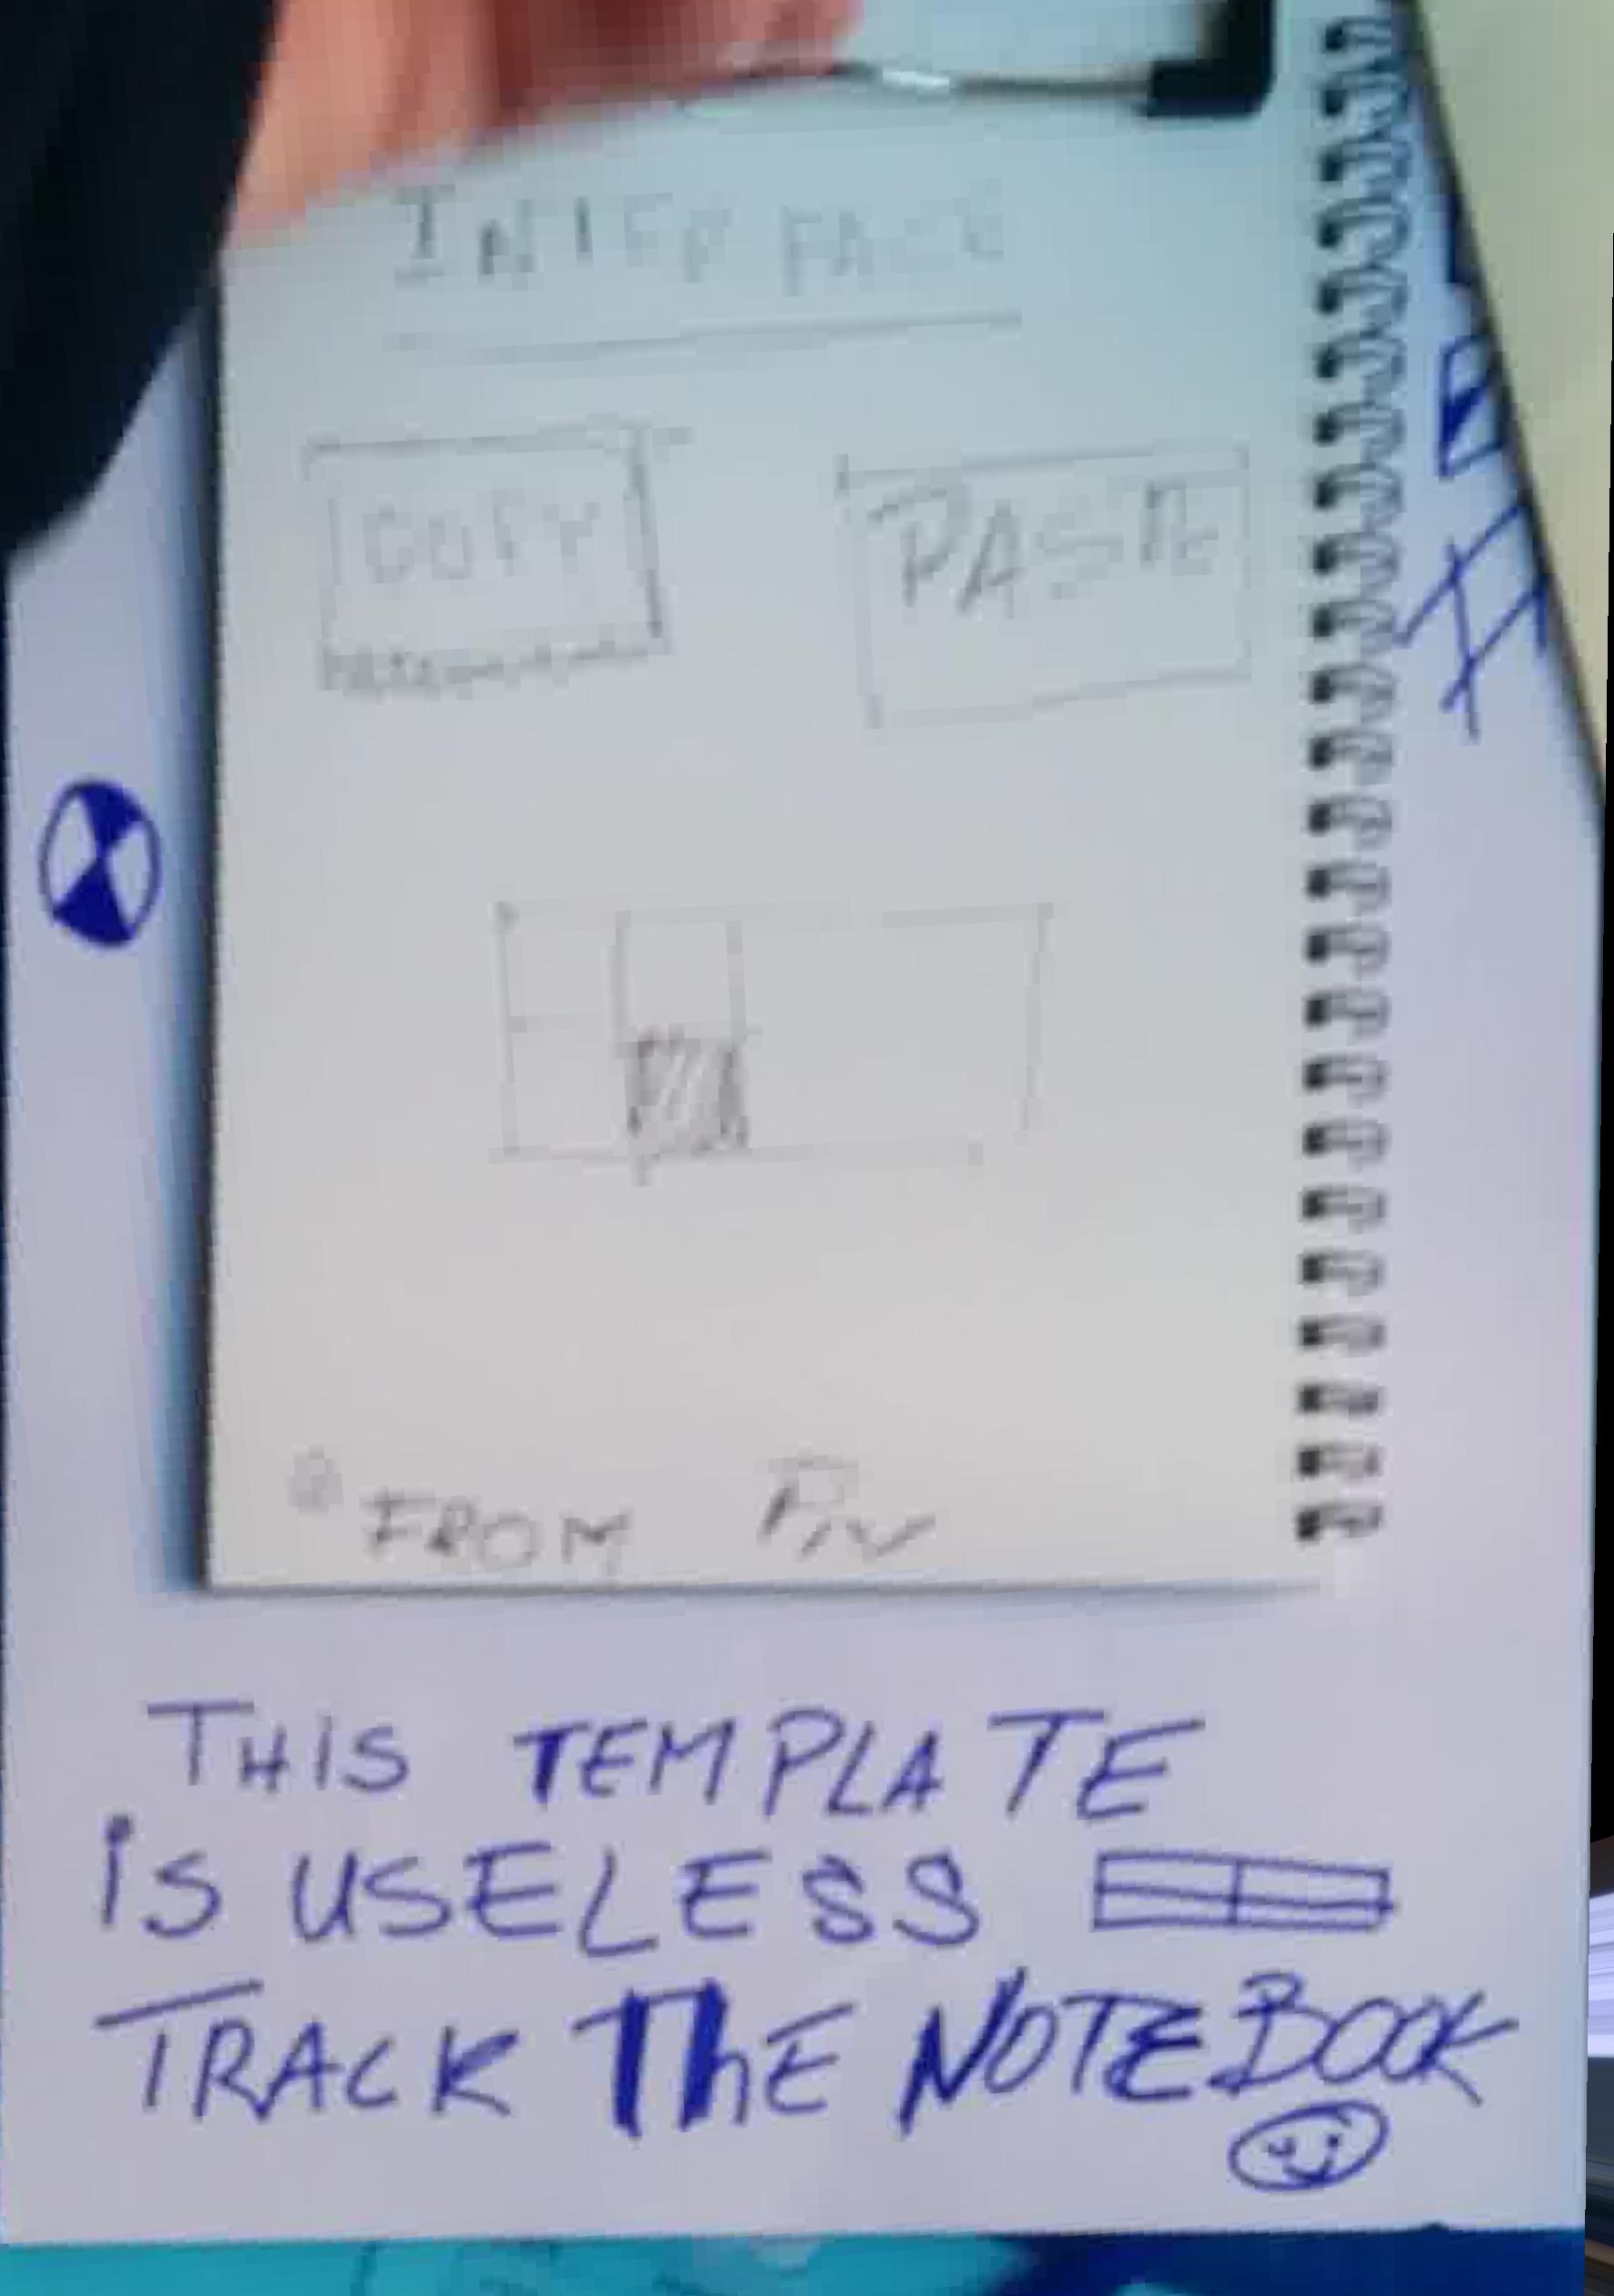 INTERFACE
COPY PASTE
FROM
THIS TEMPLATE
is USELESS
TRACK ThE NOTEBOOK